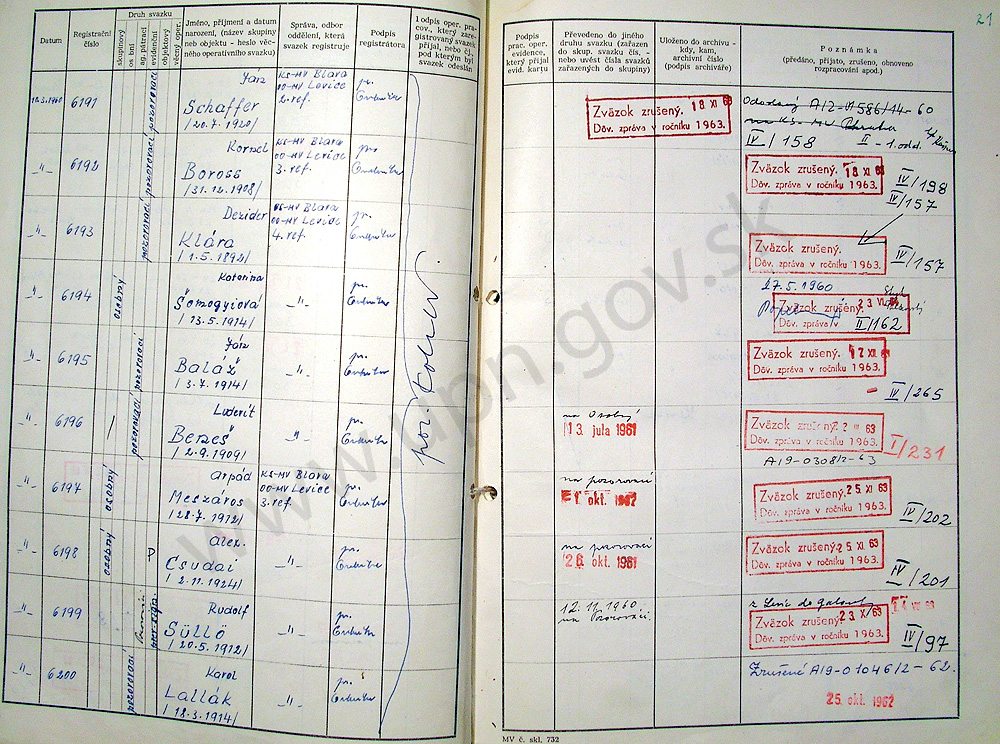 21
Datum
Registrační
číslo
Druh svazku
skupinový
osobní
ag. pátrací
evidenční
objektový
věcný oper.
Jméno, příjmení a datum
narození, (název skupiny
neb objektu - heslo věc-
ného operativního svazku)
Správa, odbor
oddělení, která
svazek registruje
Podpis
registrátora
1 odpis oper. pra-
cov., který zare-
gistrovaný svazek
přijal, nebo čís.
pod kterým byl
svazek odeslán
Podpis
prac. oper.
evidence,
který přijal
evid. kartu
Převedeno do jiného
druhu svazku (zařazen
do skup. svazku čís. -
nebo uvést čísla svazků
zařazených do skupiny)
Uloženo do archivu -
kdy, kam,
archivní číslo
(podpis archiváře)
Poznámka
(předáno, přijato, zrušeno, obnoveno
rozpracování apod.)
18.3.1960 6191
pozorovací
Ján
Schaffer
/20.7.1920/
KS-MV Blava
OO-MV Levice
2. ref.
pr.
Zväzok zrušený. 18 XI 63
Dôv. zpráva v ročníku 1963.
A12-
586/14-60
IV/158
II - 1. odd.
-"- 6192
pozorovací
Kornel
Boross
/31.12.1908/
KS-MV Blava
OO-MV Levice
3. ref.
pr.
Zväzok zrušený. 18 XI 63
Dôv. zpráva v ročníku 1963.
IV/198
IV/157
-"- 6193
pozorovací
Dezider
Klára
/1.5.1892/
KS-MV Blava
OO-MV Levice
4. ref.
pr.
Zväzok zrušený.
Dôv. zpráva v ročníku 1963.
IV/157
-"- 6194
osobný
Katarína
Šomogyiová
/13.5.1914/
-"-
pr.
27.5.1960
Zväzok zrušený. 23
Dôv. zpráva v
II/162
-"- 6195
pozorovací
Ján
Baláž
/3.7.1914/
-"-
pr.
Zväzok zrušený. 12 XI 63
Dôv. zpráva v ročníku 1963.
- IV/265
-"- 6196
pozorovací
Ludevít
Berzeš
/2.9.1909/
-"-
pr.
na Osobný
13. júla 1961
Zväzok zrušený. 63
Dôv. zpráva v ročníku 1963.
I/231
A19-0308/2-63
-"- 6197
osobný
Arpád
Meszáros
/28.7.1912/
KS-MV Blava
OO-MV Levice
3. ref.
pr.
na pozorovací
okt. 1962
Zväzok zrušený. 25 XI 63
Dôv. zpráva v ročníku 1963.
IV/202
-"- 6198
osobný
Alex.
Csudai
/2.11.1924/
-"-
pr.
na pozorovací
26. okt. 1961
Zväzok zrušený. 25 XI 63
Dôv. zpráva v ročníku 1963.
IV/201
-"- 6199
Rudolf
Süllö
/20.5.1912/
-"-
pr.
12.11.1960
na Pozorovací
Zväzok zrušený. 23 X 63
Dôv. zpráva v ročníku 1963.
IV/97
-"- 6200
pozorovací
Karol
Lallák
/18.3.1914/
-"-
pr.
Zrušené A19-01046/2-62.
25. okt. 1962
MV č. skl. 732
www.upn.gov.sk